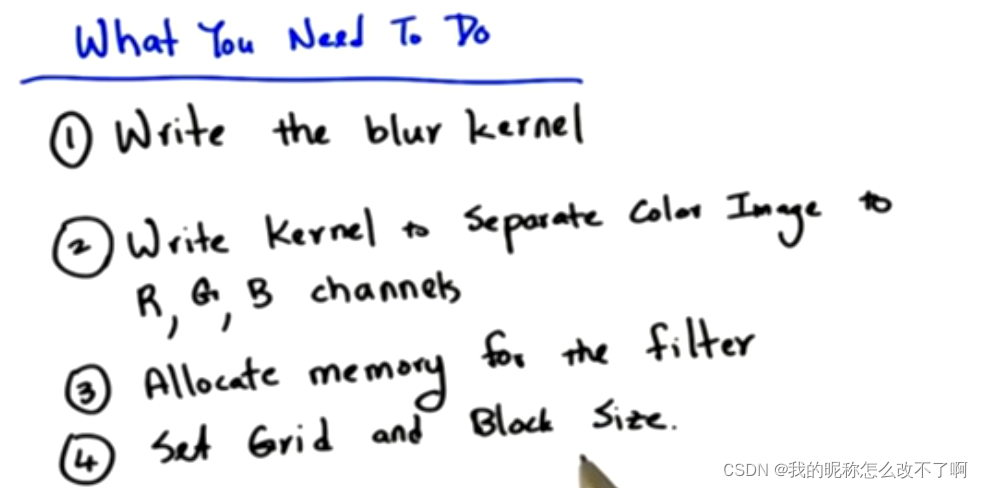 What You Need To Do
① Write the blur kernel
② Write kernel to Separate Color Image to
R, G, B channels
③ Allocate memory for the filter
④ Set Grid and Block Size.
CSDN @我的昵称怎么改不了啊